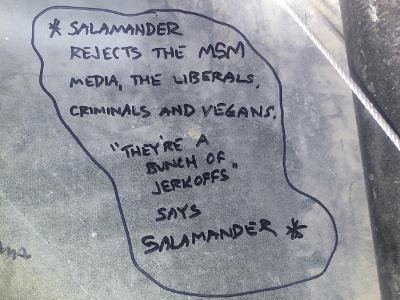 * SALAMANDER
REJECTS THE MSM
MEDIA, THE LIBERALS,
CRIMINALS AND VEGANS.
"THEY'RE A
BUNCH OF
JERKOFFS"
SAYS
SALAMANDER *